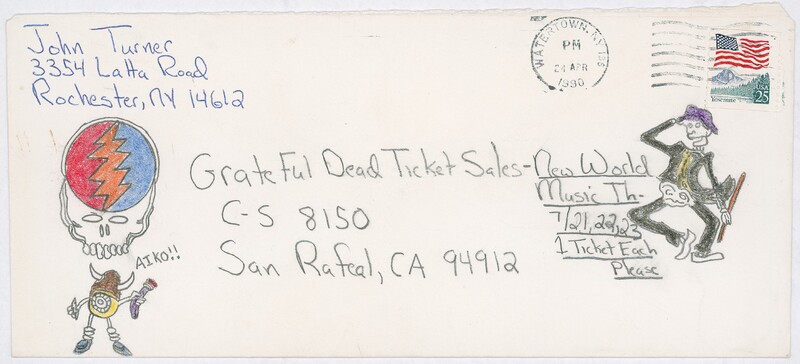 John Turner
3354 Latta Road
Rochester, NY 14612
WATERTOWN, NY 136
PM
24 APR
1990
Yosemite
USA
25
Grateful Dead Ticket Sales-
C-S 8150
San Rafeal, CA 94912
New World
Music Th-
7/21,22,23
1 Ticket Each
Please
AIKO!!